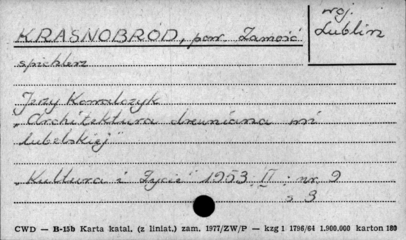 KRASNOBRÓD, pow. Zamość
woj.
Lublin
spichlerz
Jerzy Kowalczyk
„Architektura drewniana wsi
lubelskiej"
„Kultura i Życie" 1953, II ; nr. 9
s 3
CWD — B-15b Karta katal. (z liniat.) zam. 1977/ZW/P — kzg 1 1796/64 1.900.000 karton 180